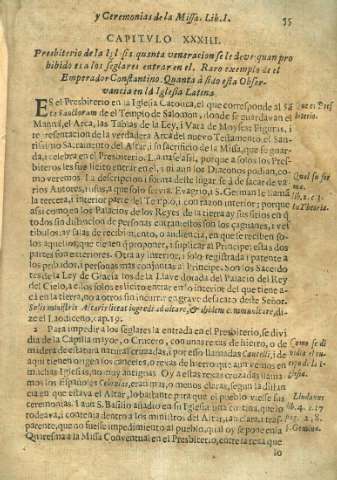 y Ceremonias de la Missa. Lib. I.
55
CAPITVLO XXXIII.
Presbiterio de la Iglesia quanta veneracion se le deve: quan pro
bibido es a los seglares entrar en el. Raro exemplo es el
Emperador Constantino. Quanta à sido esta Obser-
vancia en la Iglesia Latina.
ES el Presbiterio en la Iglesia Catolica, el que corresponde al Sã
cta Sanctorum de el Templo de Salomon, donde se guardavan el
Manná, el Arca, las Tablas de la Ley, i Vara de Moyses: Figuras, i re
presentacion de la verdadera Arca del nuevo Testamento, el Santi-
simo Sacramento del Altar, i su sacrificio de la Missa, que se guar-
da, i celebra en el Presbiterio. porque a solos los Pres-
biteros les sue licito entrar en el, i ni aun los Diaconos podian, co-
mo veremos. La descripcion i forma deste lugar, se à de sacar de va-
rios Autores, i usus, a que solo servia. Evagrio, i S. German le llamã
la tercera, i interior parte del Templo, i con razon interior; porque
assi como en los Palacios de los Reyes de la tierra ay sus sitios en q̃
todos sin distincion de personas entran, estos son los zaguanes, i ves
tibulos: ay salas de recibimiento, o audiencia, en que se reciben so-
los aquellos, que tienen que proponer, i suplicar al Principe: estas dos
partes son exteriores. Otra ay interior, i solo registrada i patente a
los privados, i personas mas conjuntas al Principe. Son los Sacerdo
tes de la Ley de Gracia los de la Llave dorada del Palacio del Rey
del Cielo, a ellos solos es licito entrar en lo interior del que tiene a-
cá en la tierra, no a otros sin incurrir en grave desacato deste Señor.
Solis ministris Altaris liceat ingredi ad altare, & ibidem communicare, di-
ze el Laodiceno, cap. 19.
2 Para impedir a los seglares la entrada en el Presbiterio, se divi
dia de la Capilla mayor, o Crucero, con unas rexas de hierro, o de
madera de estatura natural cruzadas, i por esso llamadas Cancelli, i de
aqui tienen origen los canceles, o rexas de hierro que aun vemos en
muchas Iglesias, no muy antiguas. Oy a estas rexas cruzadas llama-
mos los Españoles Celosias, eran mas, o menos claras, segun la distan
cia en que estava el Altar, lo bastante para que el pueblo viesse sus
ceremonias. I aun S. Basilio añadio en su Iglesia una cortina, que lo
rodeava, i contenia dentro a los ministros del Altar, tan clara, i tras-
parente, que no fuesse impedimento al pueblo, qual oy se pone en la
Quaresma a la Missa Conventual en el Presbiterio, entre la rexa que
lo
Que es Pres
biterio.
Qual su for
ma.
lib. 2. c. 3.
in Theoria.
Como se di
vidia el cu-
erpo de la I-
glesia.
Lindanus
lib. 4. c. 17
pag. 2, 8.
S. German.